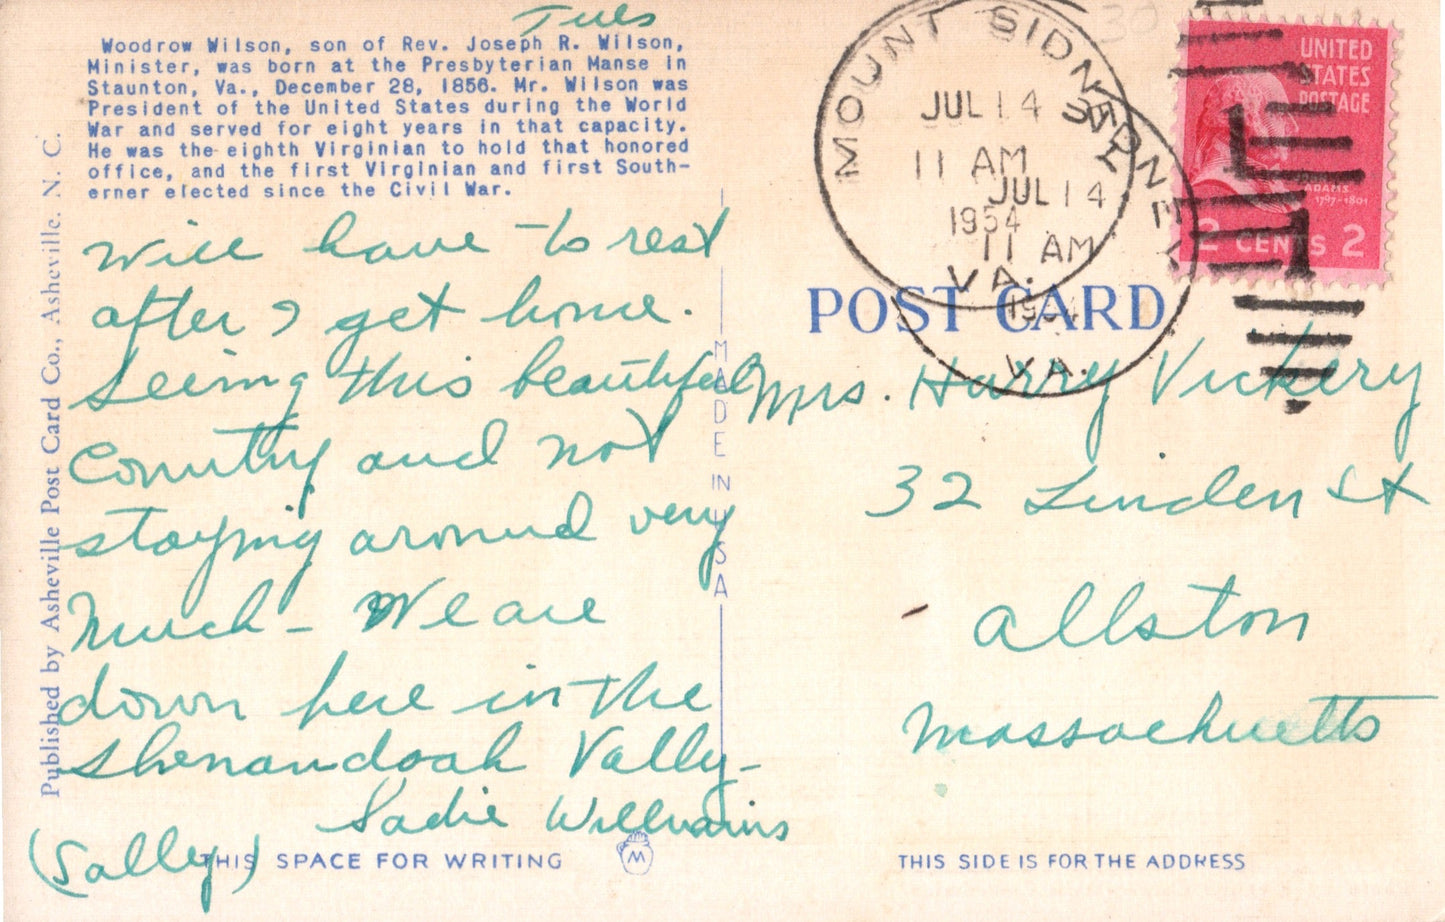 Tues
Woodrow Wilson, son of Rev. Joseph R. Wilson,
Minister, was born at the Presbyterian Manse in
Staunton, Va., December 28, 1856. Mr. Wilson was
President of the United States during the World
War and served for eight years in that capacity.
He was the eighth Virginian to hold that honored
office, and the first Virginian and first South-
erner elected since the Civil War.
Will have to rest
after I get home.
Seeing this beautiful
Country and not
staying around very
Much - We are
down here in the
Shenandoah Vally -
Sadie Williams
(Sally)
THIS SPACE FOR WRITING
M
Published by Asheville Post Card Co., Asheville. N. C.
MADE IN USA
MOUNT SIDNEY
JUL 14
11 AM
1954
VA.
SIDNEY
JUL 14
11 AM
1954
VA.
30
UNITED
STATES
POSTAGE
ADAMS
1797-1801
2 CENTS 2
POST CARD
Mrs. Harry Vickery
32 Linden St
Allston
Massachuetts
THIS SIDE IS FOR THE ADDRESS